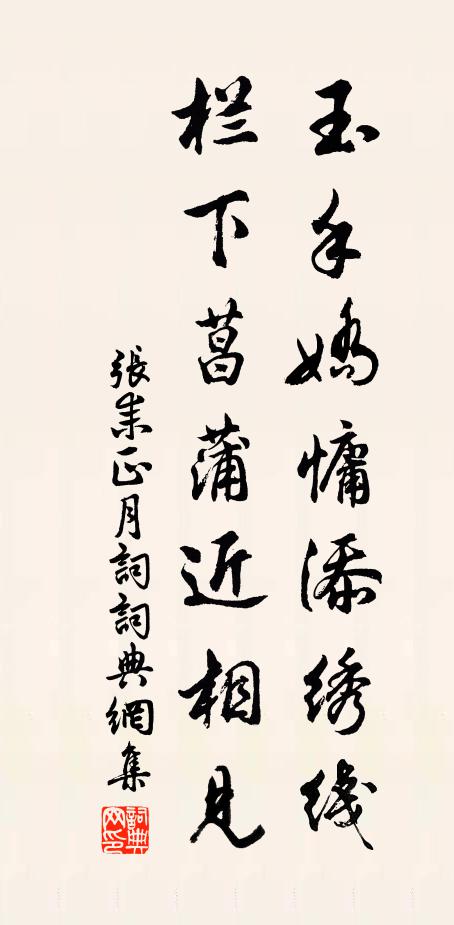 玉手娇慵添绣线
栏下菖蒲近相见
張耒正月詞詞典網集
詞典網印